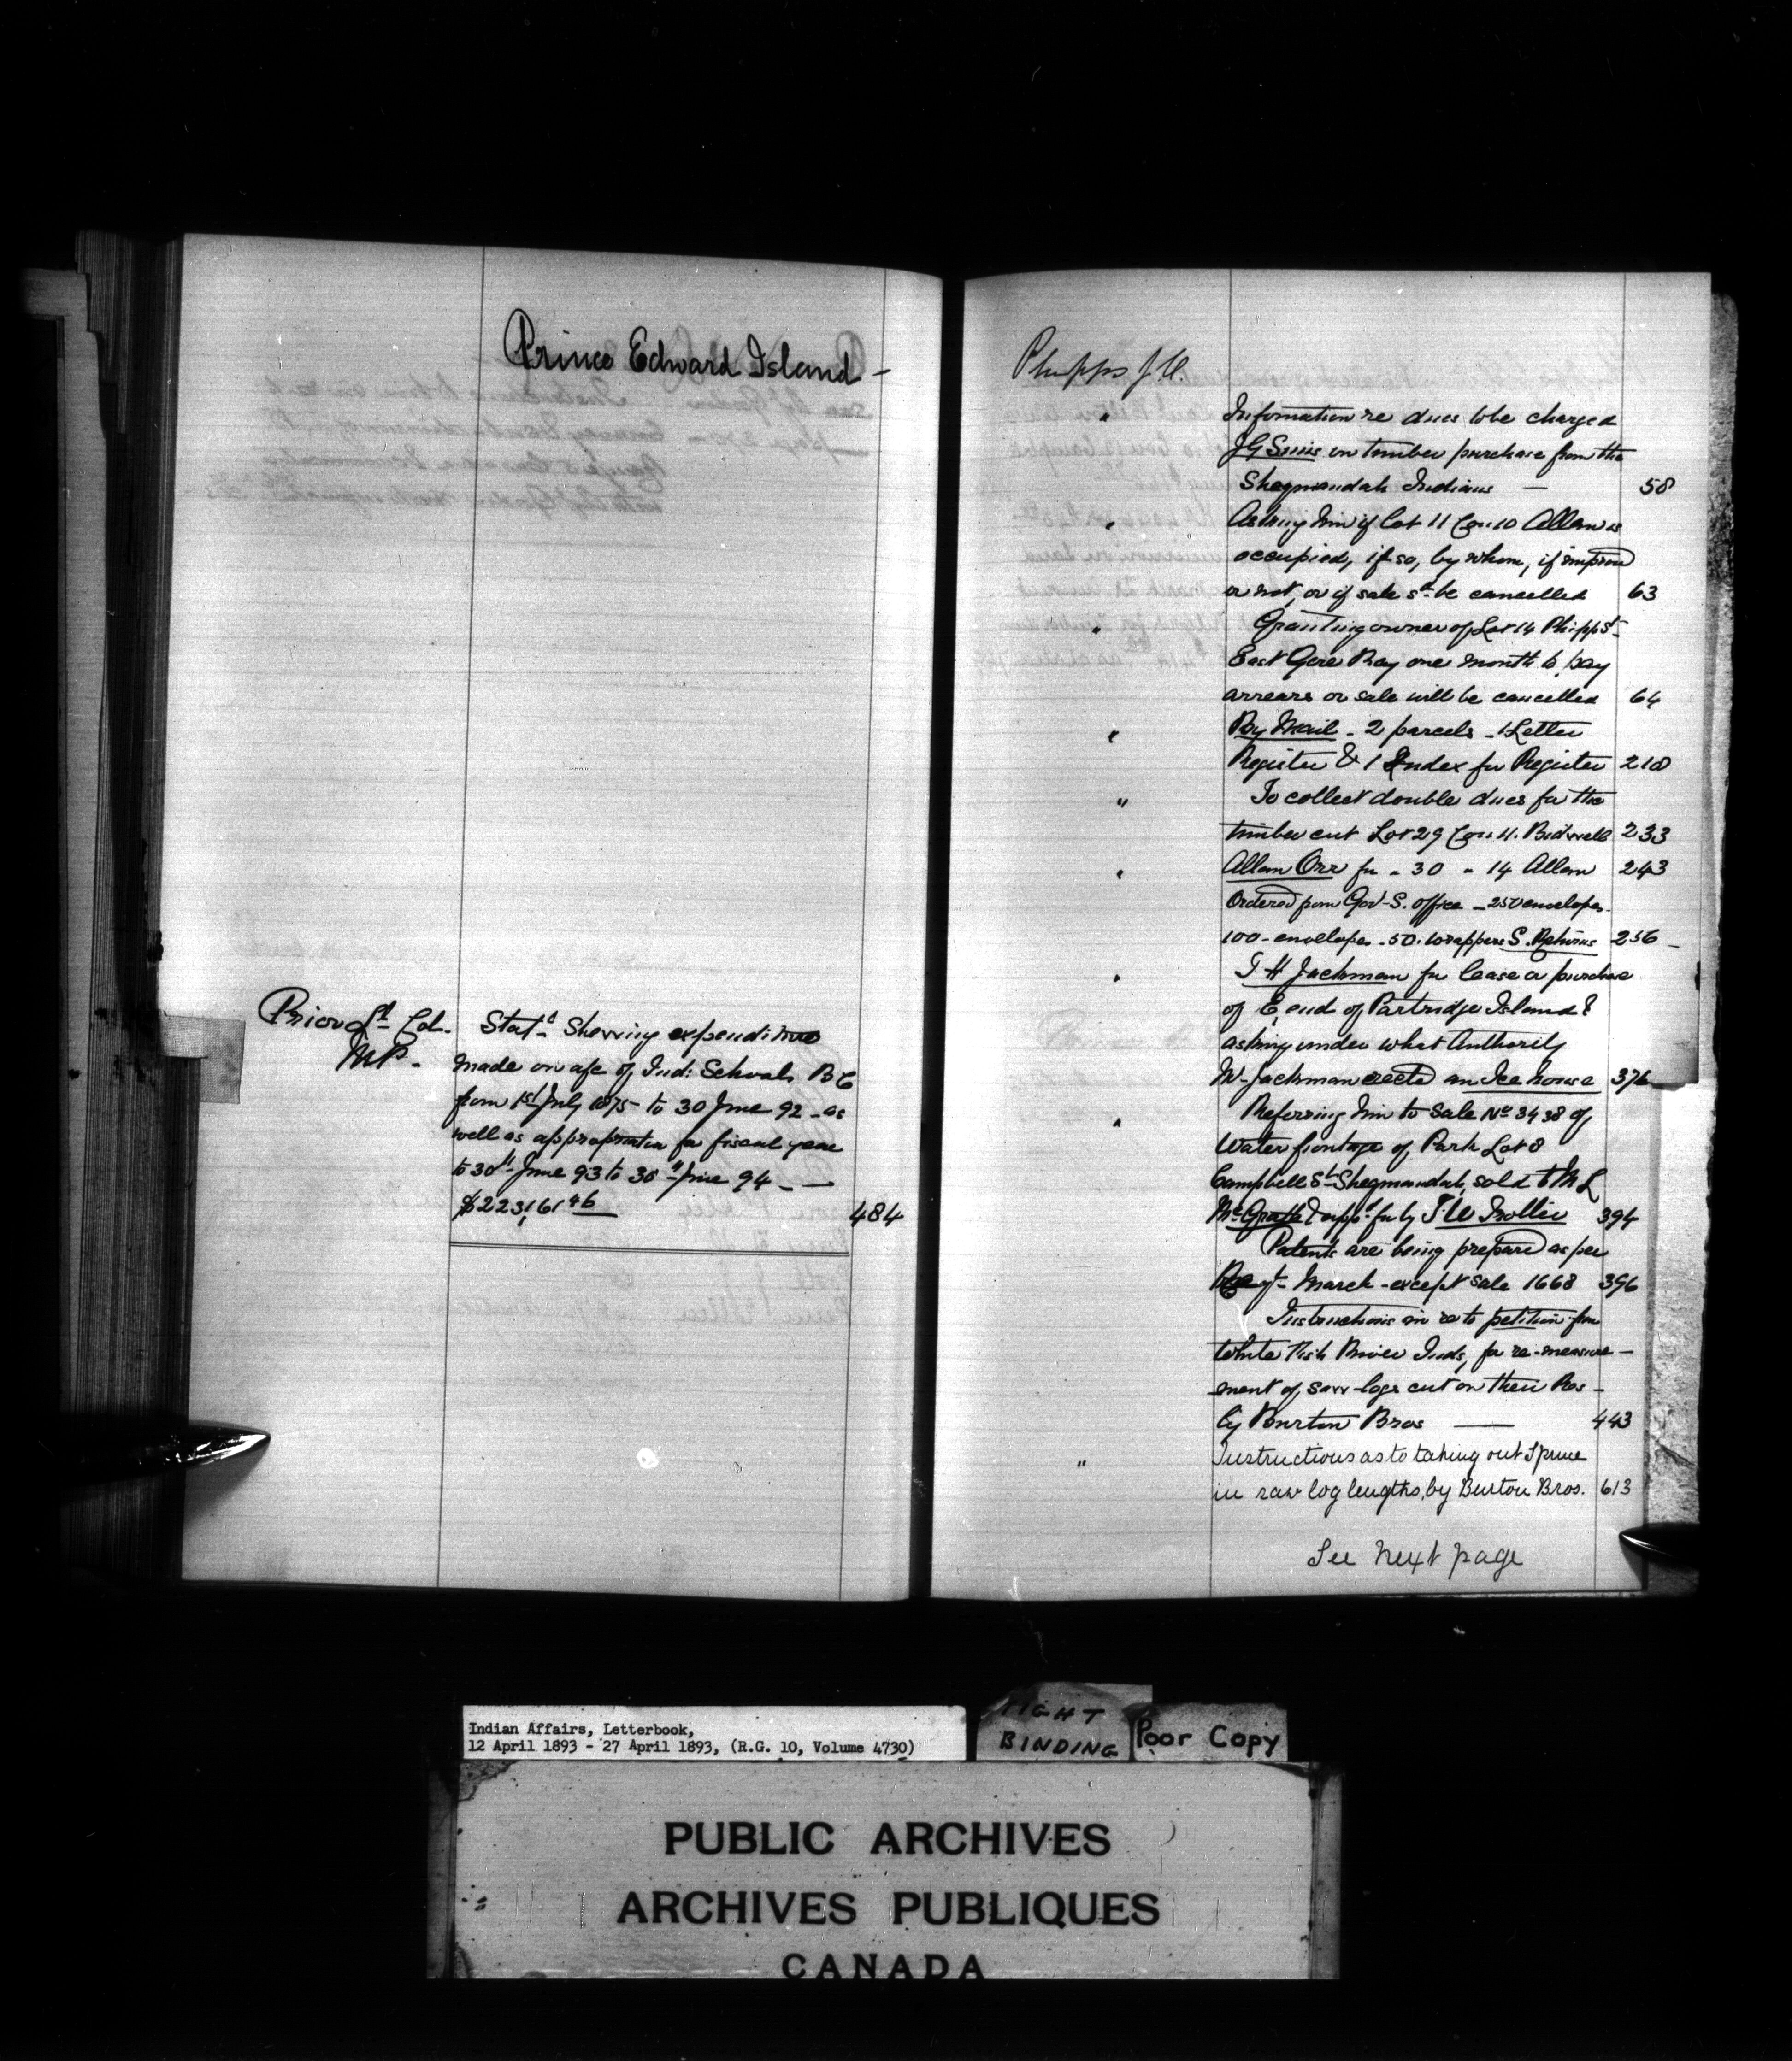 Prince Edward Island -
Prior Lt Col.
MP.
Statt Showing expenditure
made on a/c of Ind: Schools B C
from 1st July 1875 to 30 June 92 - as
well as appropriation for fiscal year
to 30th June 93 to 30th June 94 - —
$223,161 46 484
Phipps J.C.
" Information re dues to be charged
J G Sims on timber purchase from the
Shegmandah Indians — 58
" Asking him if Lot 11 Con 10 Allan is
occupied, if so, by whom, if improved
or not, or if sale sd be cancelled 63
" Granting owner of Lot 14 Phipps St
East Gore Bay one month to pay
arrears or sale will be cancelled 64
" By Mail - 2 parcels - 1 Letter
Register & 1 Index for Register 218
" To collect double dues for the
timber cut Lot 29 Con 11. Bidwell 233
" Allan Orr for " 30 " 14 Allan 243
Ordered from Gov S. office - 250 envelopes
100 - envelopes - 50. wrappers S. Returns 256
" T H Jackman for lease or purchase
of E, end of Partridge Island &
asking under what Authority
Mr Jackman erected an Ice house 376
" Referring him to Sale No 3438 of
Water frontage of Park Lot 8
Campbell St Shegmandah, sold to M L
McGrath & appd for by J. W Trotter 394
Patents are being prepared as per
March - except sale 1668 396
Instructions in re to petition from
White Fish River Inds, for re-measure -
ment of saw-logs cut on their Res -
by Burton Bros — 443
" Instructions as to taking out Spruce
in saw log lengths, by Burton Bros. 613
See next page
Indian Affairs, Letterbook,
12 April 1893 - 27 April 1893, (R.G. 10, Volume 4730)
TIGHT
BINDING
Poor Copy
PUBLIC ARCHIVES
ARCHIVES PUBLIQUES
CANADA